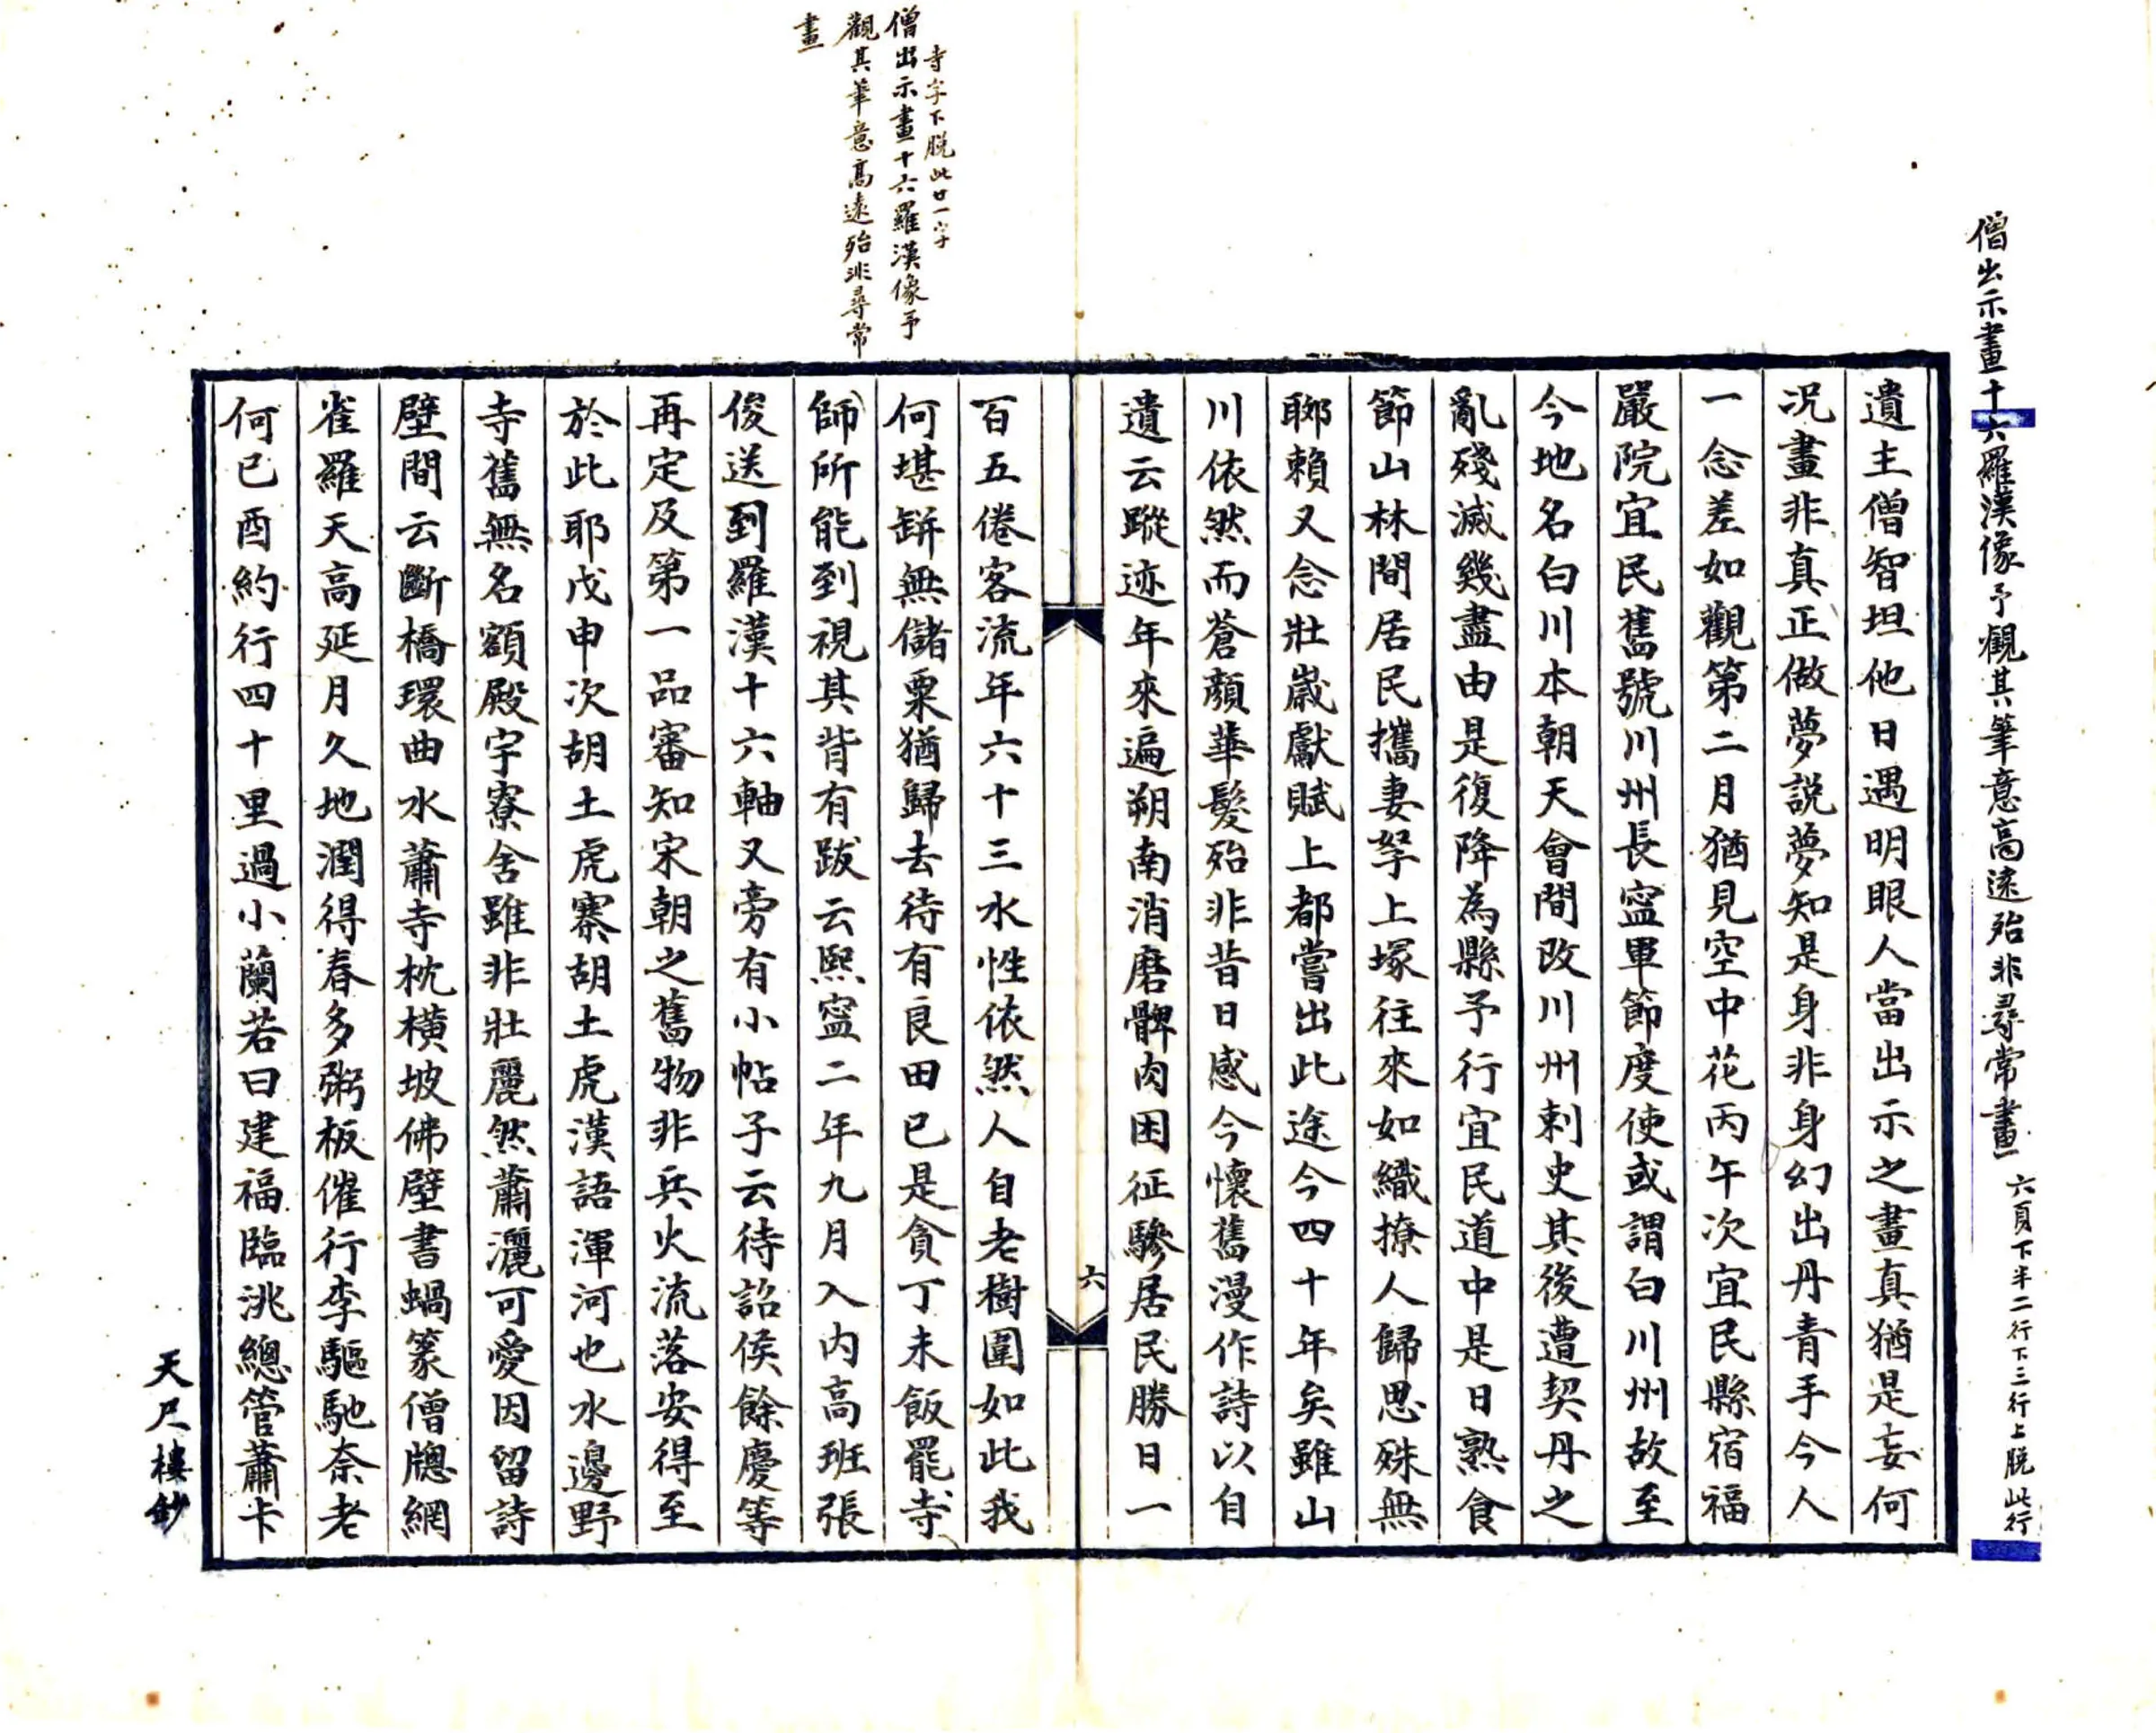 僧出示畫十六羅漢像予觀其筆意高遠殆非尋常畫
六頁下半二行下三行上脫此行
遺主僧智坦他日遇明眼人當出示之畫真猶是妄何
況畫非真正做夢説夢知是身非身幻出丹青手今人
一念差如觀第二月猶見空中花丙午次宜民縣宿福
嚴院宜民舊號川州長寍軍節度使或謂白川州故至
今地名白川本朝天會間改川州刺史其後遭契丹之
亂殘滅幾盡由是復降為縣予行宜民道中是日熟食
節山林間居民攜妻孥上塚往來如織撩人歸思殊無
聊賴又念壯嵗獻賦上都嘗出此途今四十年矣雖山
川依然而蒼顏華髮殆非昔日感今懷舊漫作詩以自
遺云蹤迹年來遍朔南消磨髀肉困征驂居民勝日一
六
寺字下脫此廿一字
僧出示畫十六羅漢像予
觀其筆意高遠殆非尋常
畫
百五倦客流年六十三水性依然人自老樹圍如此我
何堪缾無儲粟猶歸去待有良田已是貪丁未飯罷寺
師所能到視其背有跋云熙寍二年九月入内高班張
俊送到羅漢十六軸又旁有小帖子云待詔侯餘慶等
再定及第一品審知宋朝之舊物非兵火流落安得至
於此耶戊申次胡土虎寨胡土虎漢語渾河也水邊野
寺舊無名額殿宇寮舍雖非壯麗然蕭灑可愛因留詩
壁間云斷橋環曲水蕭寺枕橫坡佛壁書蝸篆僧牕網
雀羅天高延月久地潤得春多粥板催行李驅馳奈老
何已酉約行四十里過小蘭若曰建福臨洮總管蕭卞
天尺樓鈔